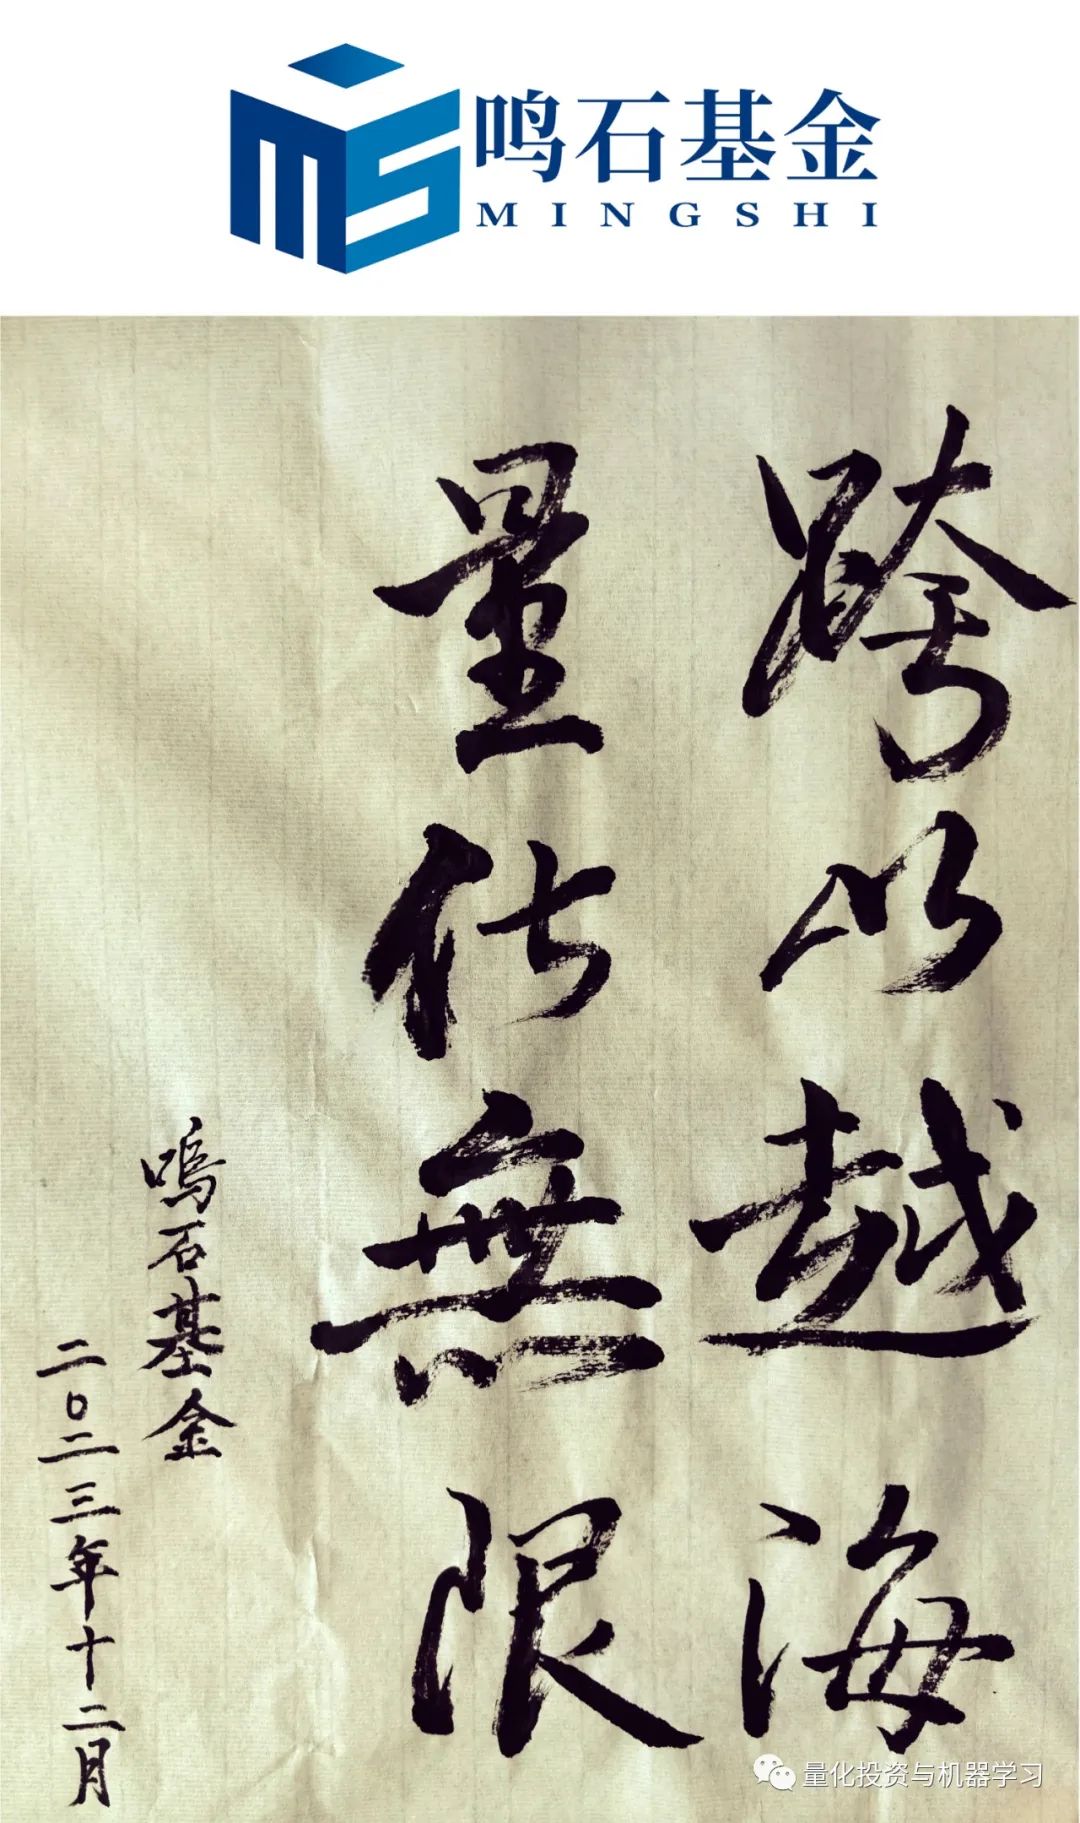 鸣石基金
MINGSHI
跨以越海
量化無限
鳴石基金
二〇二三年十二月
量化投资与机器学习